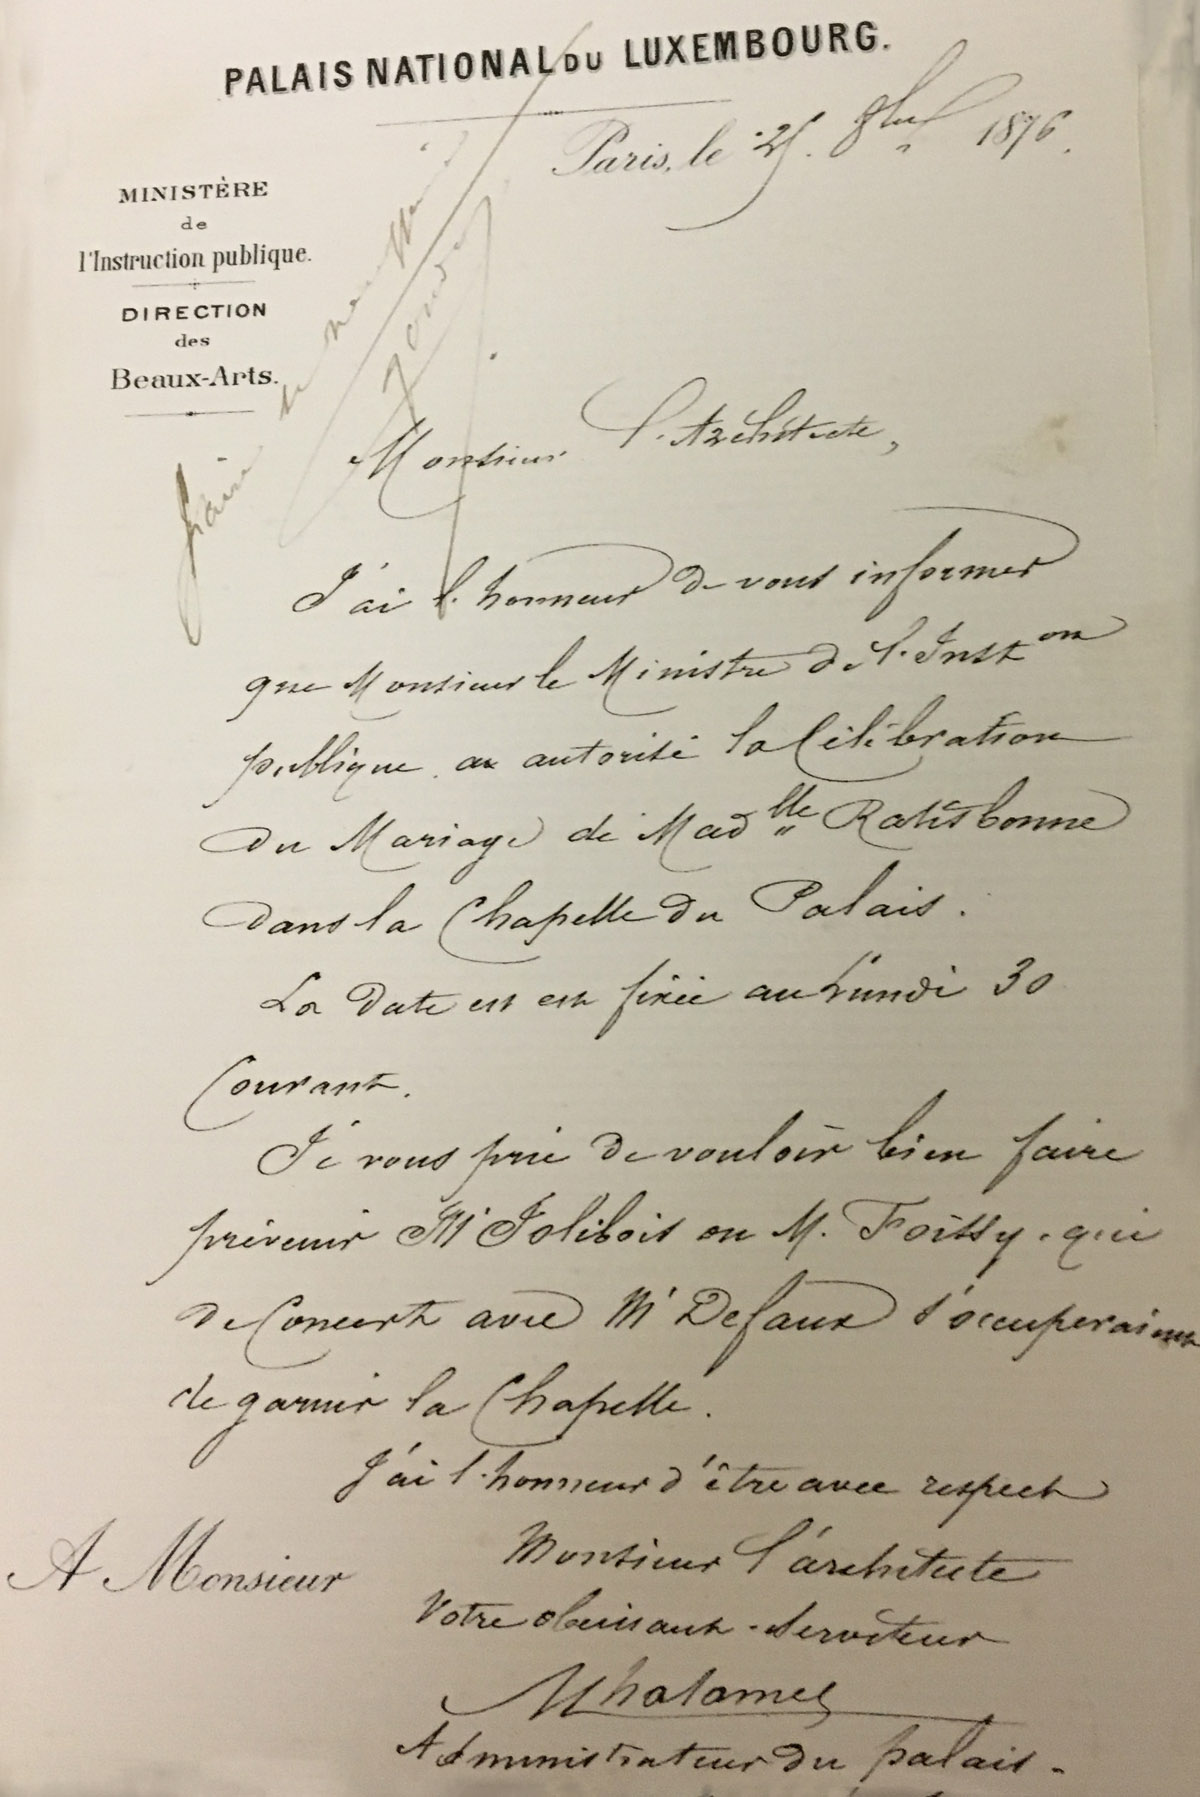 PALAIS NATIONAL DU LUXEMBOURG.
Paris, le 25. 8bre 1876.
MINISTÈRE
de
l'Instruction publique.
DIRECTION
des
Beaux-Arts.
faire
Monsieur l'Architecte,
J'ai l'honneur de vous informer
que Monsieur le Ministre de l'Inston
publique a autorisé la Célébration
du Mariage de Madlle Ratisbonne
dans la Chapelle du Palais.
La date est est fixée au Lundi 30
Courant.
Je vous prie de vouloir bien faire
prévenir Mr Jolibois ou M. Foissy, qui
de Concert avec Mr Defaux s'occuperaient
de garnir la Chapelle.
J'ai l'honneur d'être avec respect
Monsieur l'architecte
Votre obéissant serviteur
A Monsieur
Administrateur du palais.